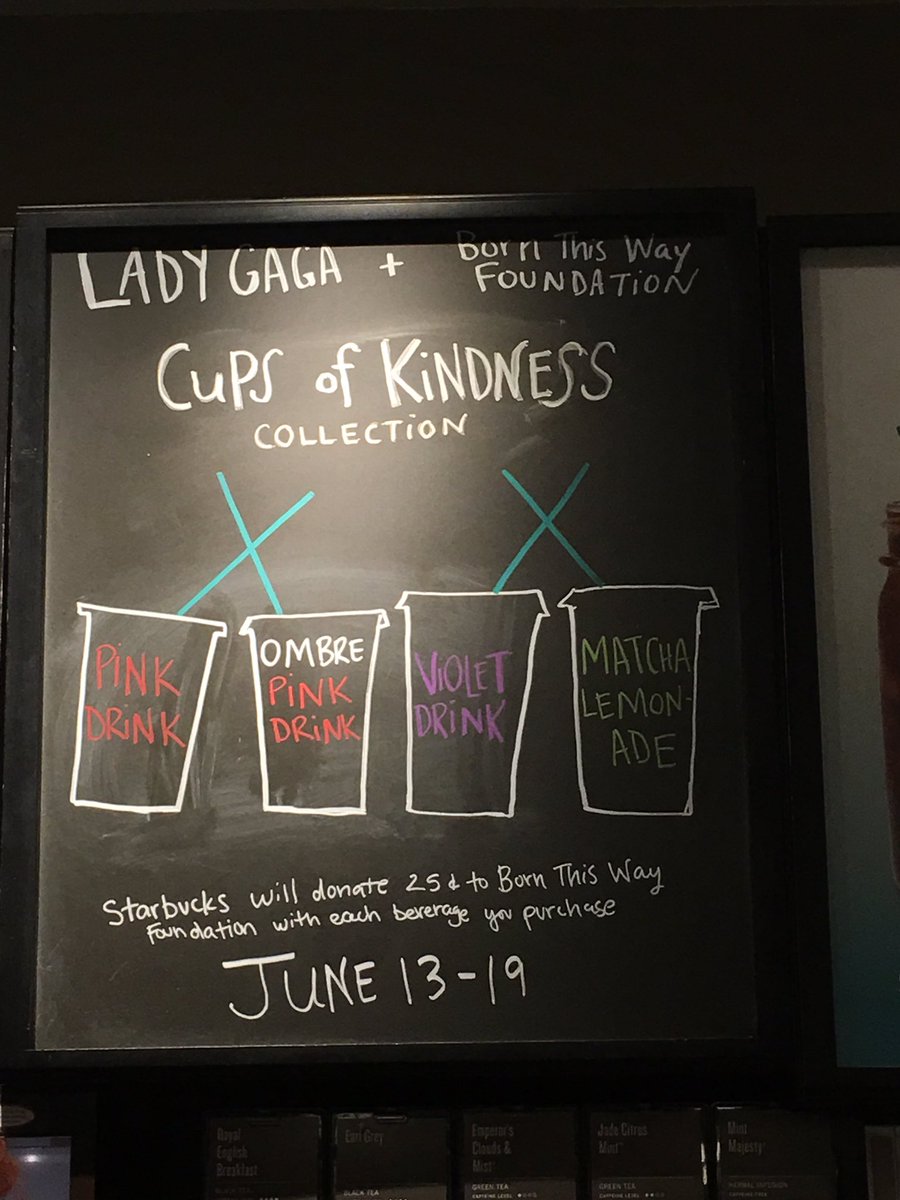 LADY GAGA + Born This Way
FOUNDATION
CUPS of KINDNESS
COLLECTION
PINK
DRINK
OMBRE
PINK
DRINK
VIOLET
DRINK
MATCHA
LEMON-
ADE
Starbucks will donate 25¢ to Born This Way
Foundation with each beverage you purchase
JUNE 13-19
Royal
English
Breakfast
Earl Grey
BLACK TEA
Emperor's
Clouds &
Mist
GREEN TEA
CAFFEINE LEVEL
Jade Citrus
Mint
GREEN TEA
CAFFEINE LEVEL
Mint
Majesty
HERBAL INFUSION
CAFFEINE-FREE